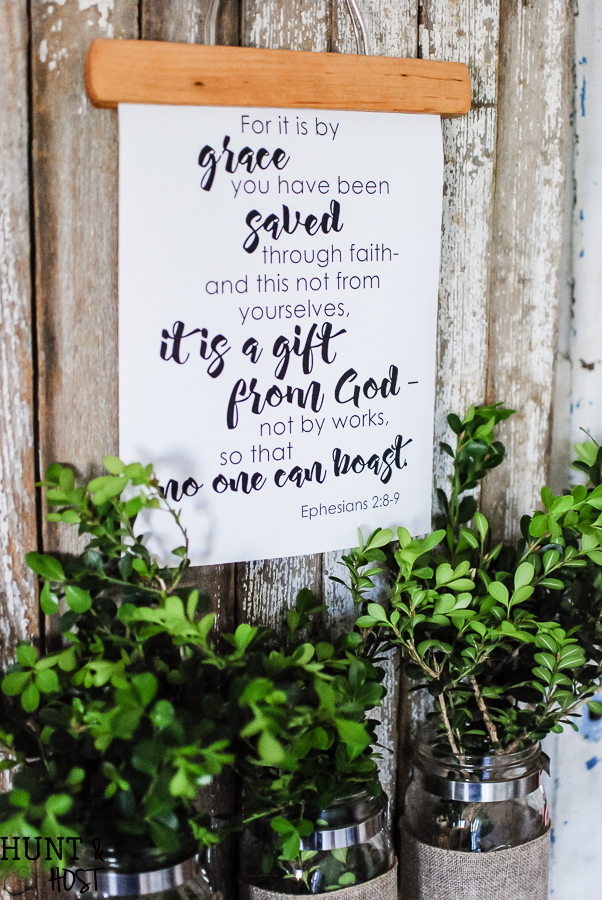 For it is by
grace
you have been
saved
through faith-
and this not from
yourselves,
it is a gift
from God -
not by works,
so that
no one can boast.
Ephesians 2:8-9
HUNT &
HOST